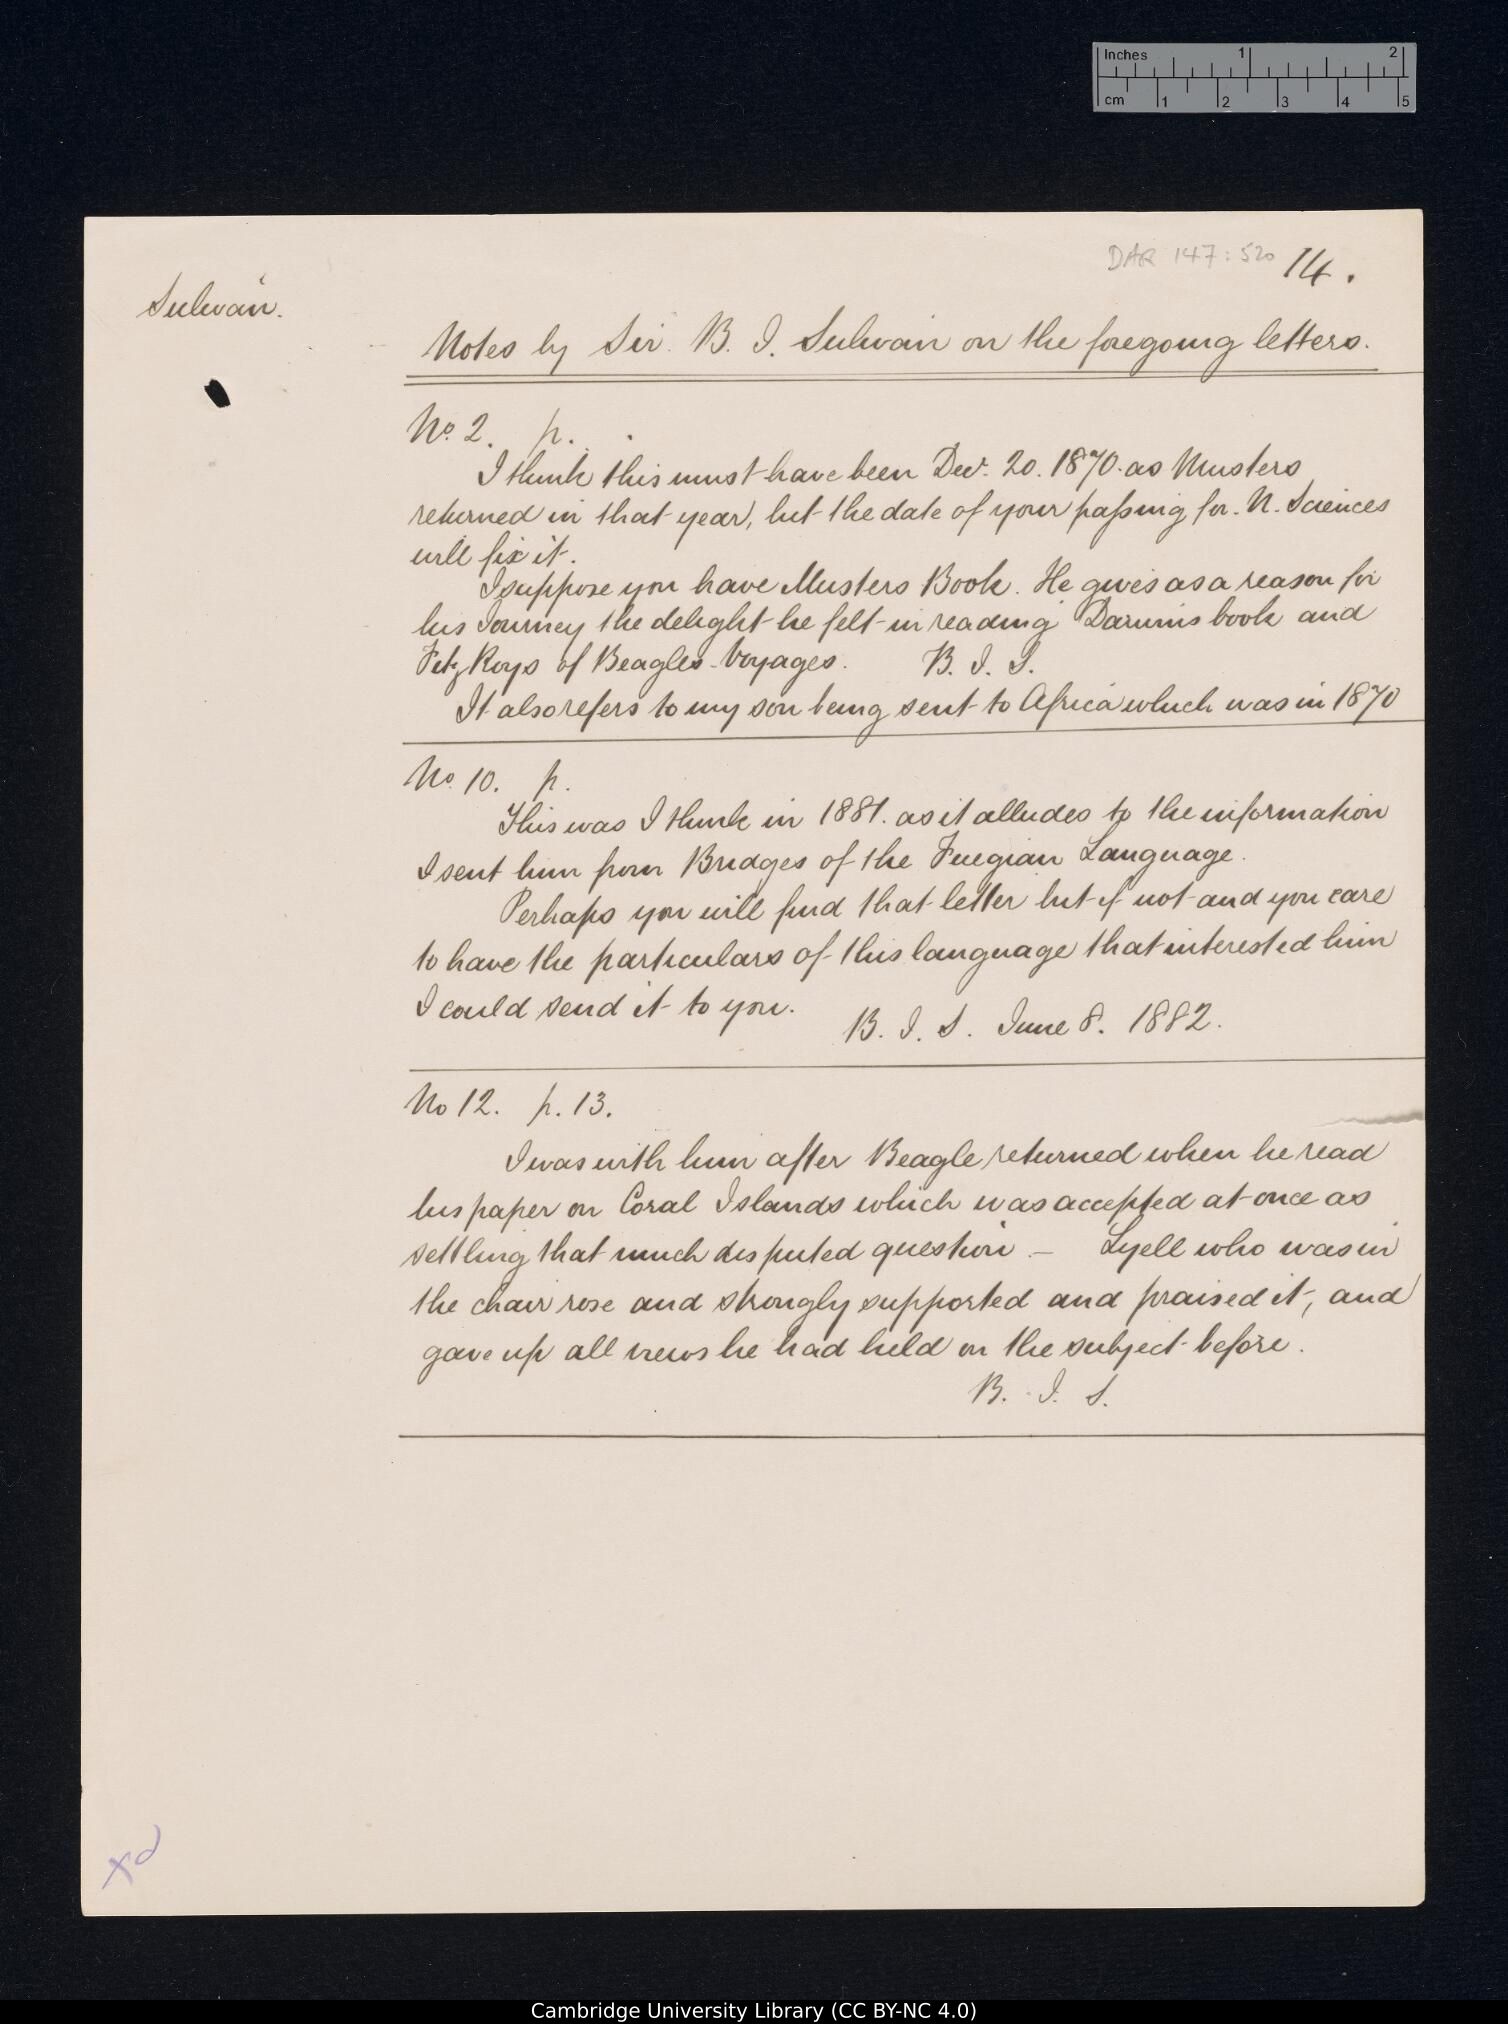 Inches 1 2
cm 1 2 3 4 5
DAR 147: 520 14.
Sulivan.
Notes by Sir. B. J. Sulivan on the foregoing letters.
No. 2. p.
I think this must have been Decr. 20. 1870. as Musters
returned in that year, but the date of your passing for. N. Sciences
will fix it.
I suppose you have Musters Book. He gives as a reason for
his Journey the delight he felt in reading Darwins book and
FitzRoys of Beagles Voyages. B. J. S.
It also refers to my son being sent to Africa which was in 1870
No. 10. p.
This was I think in 1881. as it alludes to the information
I sent him from Bridges of the Fuegian Language.
Perhaps you will find that letter but if not and you care
to have the particulars of this language that interested him
I could send it to you.
B. J. S. June 8. 1882.
No 12. p. 13.
I was with him after Beagle returned when he read
his paper on Coral Islands which was accepted at once as
settling that much disputed question — Lyell who was in
the chair rose and strongly supported and praised it, and
gave up all views he had held on the subject before.
B. J. S.
Cambridge University Library (CC BY-NC 4.0)